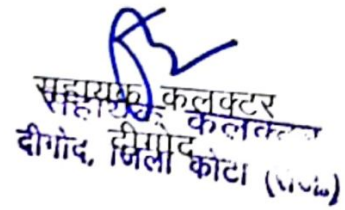 सहायक कलक्टर
सहायक कलक्टर
दीगोद
दीगोद, जिला कोटा (राज.)